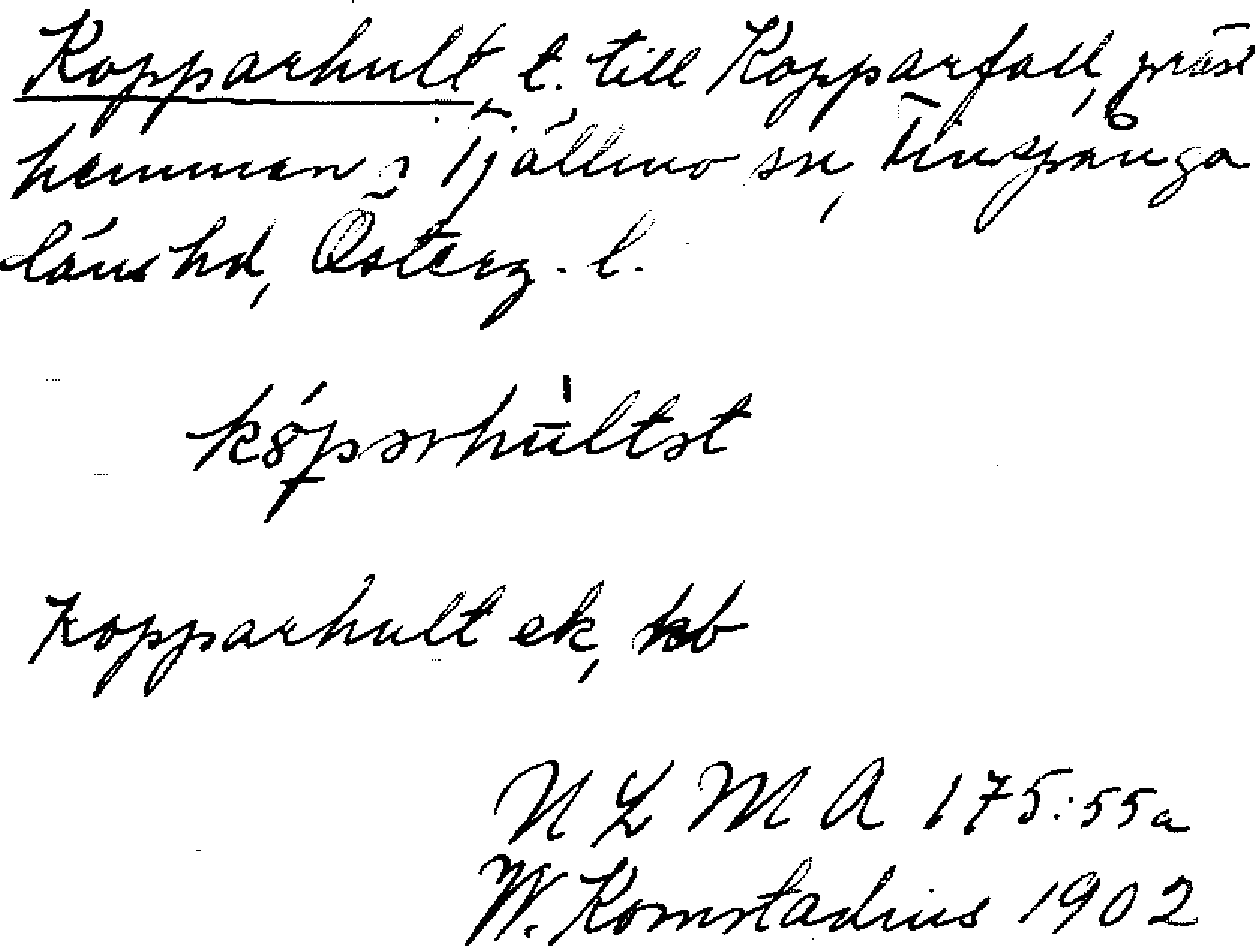 Kopparhult, t. till Kopparfall, präst
hemman i Tjällmo sn, Finspånga
läns hd, Österg. l.
kópərhùltət
Kopparhult ek, kb
N L M A 175:55a
W. Komstadius 1902